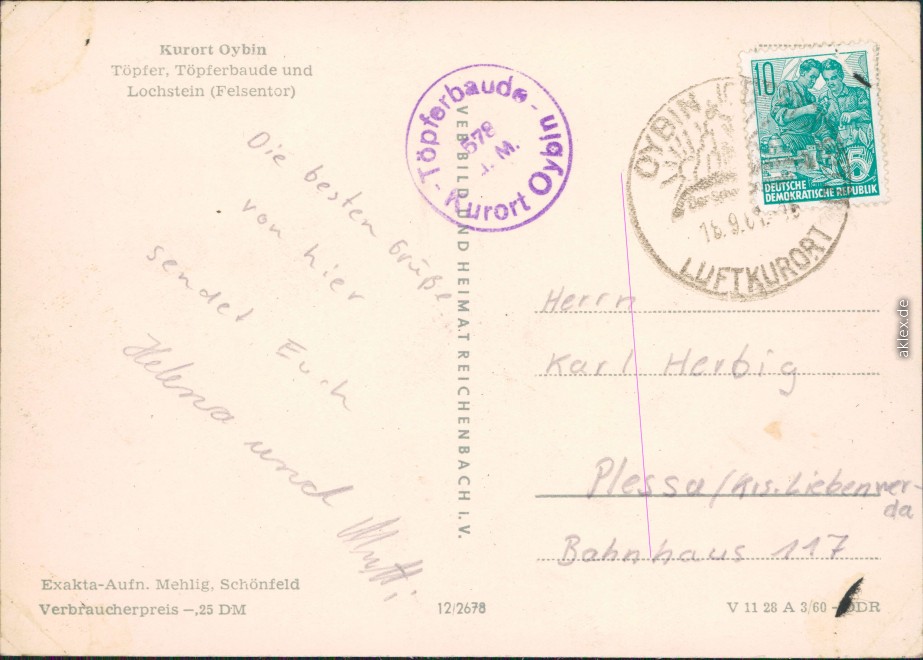 Kurort Oybin
Töpfer, Töpferbaude und
Lochstein (Felsentor)
Die besten Grüße
von hier
sendet Euch
Helena und
Exakta-Aufn. Mehlig, Schönfeld
Verbraucherpreis -,25 DM
VEB BILD UND HEIMAT REICHENBACH I. V.
12/2678
- Töpferbaude -
578
. M.
Kurort Oybin
OYBIN
Der
LUFTKURORT
10
5
DEUTSCHE
DEMOKRATISCHE REPUBLIK
Herrn
Karl Herbig
Plessa/Krs. Liebenwer-
da
Bahnhaus 117
V 11 28 A 3/60 - DDR
aklex.de